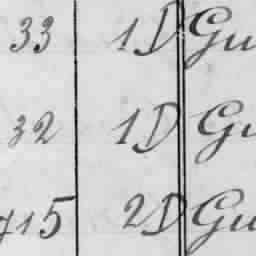 33 1D Gu
32 1D Gu
715 2D Gu